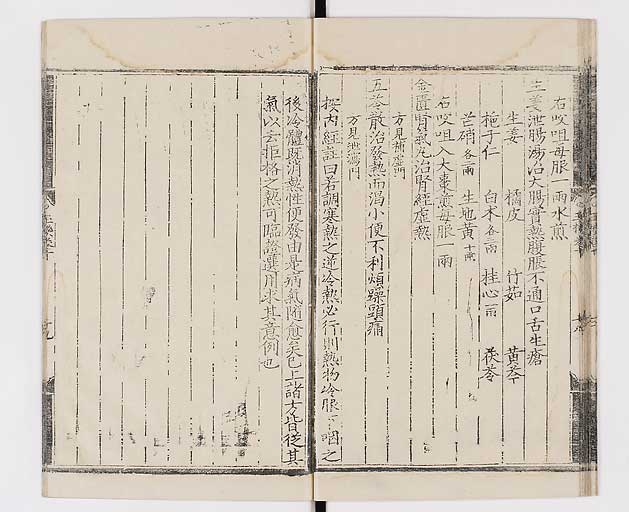 右㕮咀每服一兩水煎
生姜泄腸湯治大腸實熱腹脹不通口舌生瘡
生姜 橘皮 竹茹 黃芩
梔子仁 白朮各三兩 桂心一兩 茯苓
芒硝各三兩 生地黃十兩
右㕮咀入大棗煎每服一兩
金匱腎氣丸治腎經虛熱
方見補虛門
五苓散治發熱而渴小便不利煩躁頭痛
方見泄瀉門
按內經註曰若調寒熱之逆冷熱必行則熱物冷服下咽之
後冷體既消熱性便發由是病氣隨愈矣已上諸方皆從其
氣以去拒格之熱可臨證選用求其意例也